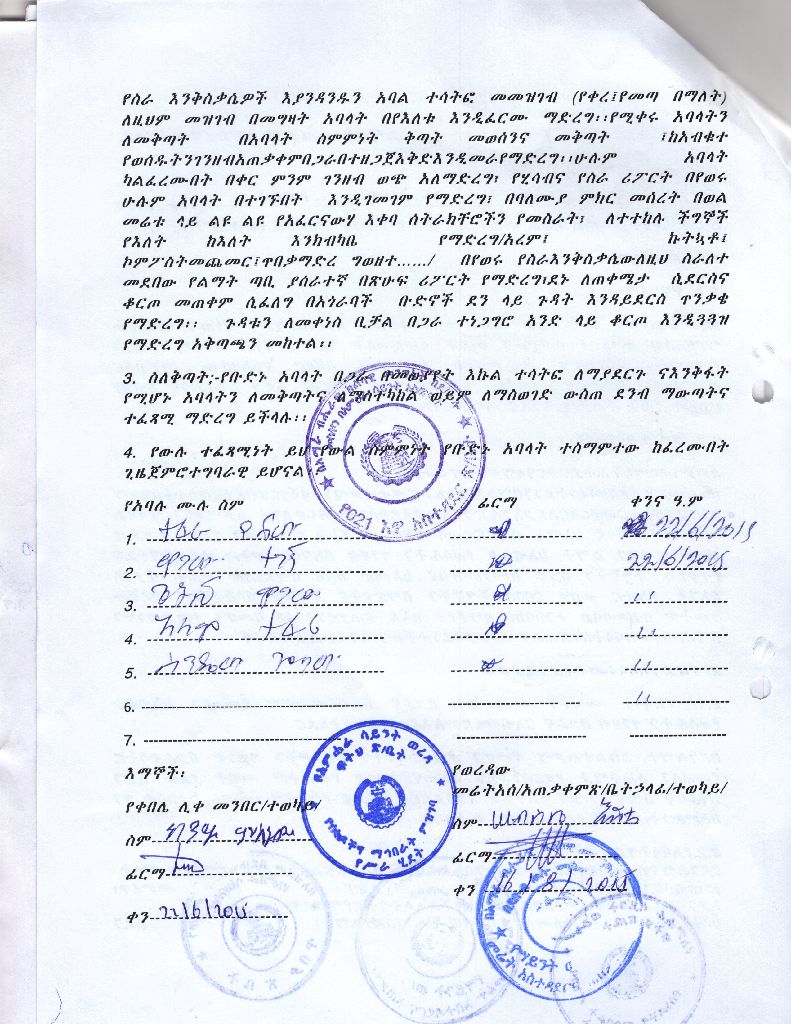 የስራ እንቅስቃሴዎች እያንዳንዱን አባል ተሳትፎ መመዝገብ (የቀረ፤የመጣ በማለት)
ለዚህም መዝገብ በመግዛት አባላት በየእለቱ እንዲፈርሙ ማድረግ፡፡የሚቀሩ አባላትን
ለመቅጣት በአባላት ስምምነት ቅጣት መወሰንና መቅጣት ፤ከአብቁተ
የወሰዱትንገንዘብአጠቃቀምበጋራበተዘጋጀእቅድእንዲመራየማድረግ፡፡ሁሉም አባላት
ካልፈረሙበት በቀር ምንም ገንዘብ ወጭ አለማድረግ፣ የሂሳብና የስራ ሪፖርት በየወሩ
ሁሉም አባላት በተገኙበት እንዲገመገም የማድረግ፣ በባለሙያ ምክር መሰረት በወል
መሬቱ ላይ ልዩ ልዩ የአፈርናውሃ እቀባ ስትራክቸሮችን የመስራት፣ ለተተከሉ ችግኞች
የእለት ከእለት እንክብካቤ የማድረግ/አረም፤ ኩትኳቶ፤
ኮምፖስትመጨመር፤ጥበቃማድረ ግወዘተ....../ በየወሩ የስራእንቅስቃሴውለዚህ ስራለተ
መደበው የልማት ጣቢ ያሰራተኛ በጽሁፍ ሪፖርት የማድረግ፡ደኑ ለጠቀሜታ ሲደርስና
ቆርጦ መጠቀም ሲፈለግ በአጎራባች ቡድኖች ደን ላይ ጉዳት እንዳይደርስ ጥንቃቄ
የማድረግ፡፡ ጉዳቱን ለመቀነስ ቢቻል በጋራ ተነጋግሮ አንድ ላይ ቆርጦ እንዲጓጓዝ
የማድረግ አቅጣጫን መከተል፡፡
3. ስለቅጣት;-የቡድኑ አባላት በጋራ በመወያየት እኩል ተሳትፎ ለማያደርጉ ናእንቅፋት
የሚሆኑ አባላትን ለመቅጣትና ለማስተካከል ወይም ለማስወገድ ውስጠ ደንብ ማውጣትና
ተፈጻሚ ማድረግ ይችላሉ፡፡
4. የውሉ ተፈጻሚነት ይህ የውል ስምምንት የቡድኑ አባላት ተስማምተው ከፈረሙበት
ጊዜጀምሮተግባራዊ ይሆናል
የአባሉ ሙሉ ስም ፊርማ ቀንና ዓ.ም
1. ተፈራ 22/6/2015
2. ዋጋው ተገኝ 22/6/2015
3. ዋጋው ,,
4. አለም ተፈራ ,,
5. ,,
6. ,,
7.
እማኞች፡
የቀበሌ ሊቀ መንበር/ተወካይ/
ስም
ፊርማ
ቀን 22/6/2015
የወረዳው
መሬትአስ/አጠቃቀምጽ/ቤትኃላፊ/ተወካይ/
ስም
ፊርማ
ቀን 2015
የ021 እዋ አስተዳደር
በአምሐራ ሳይንት ወረዳ
ፍትህ ጽ/ቤት
የሥራ ሂደት